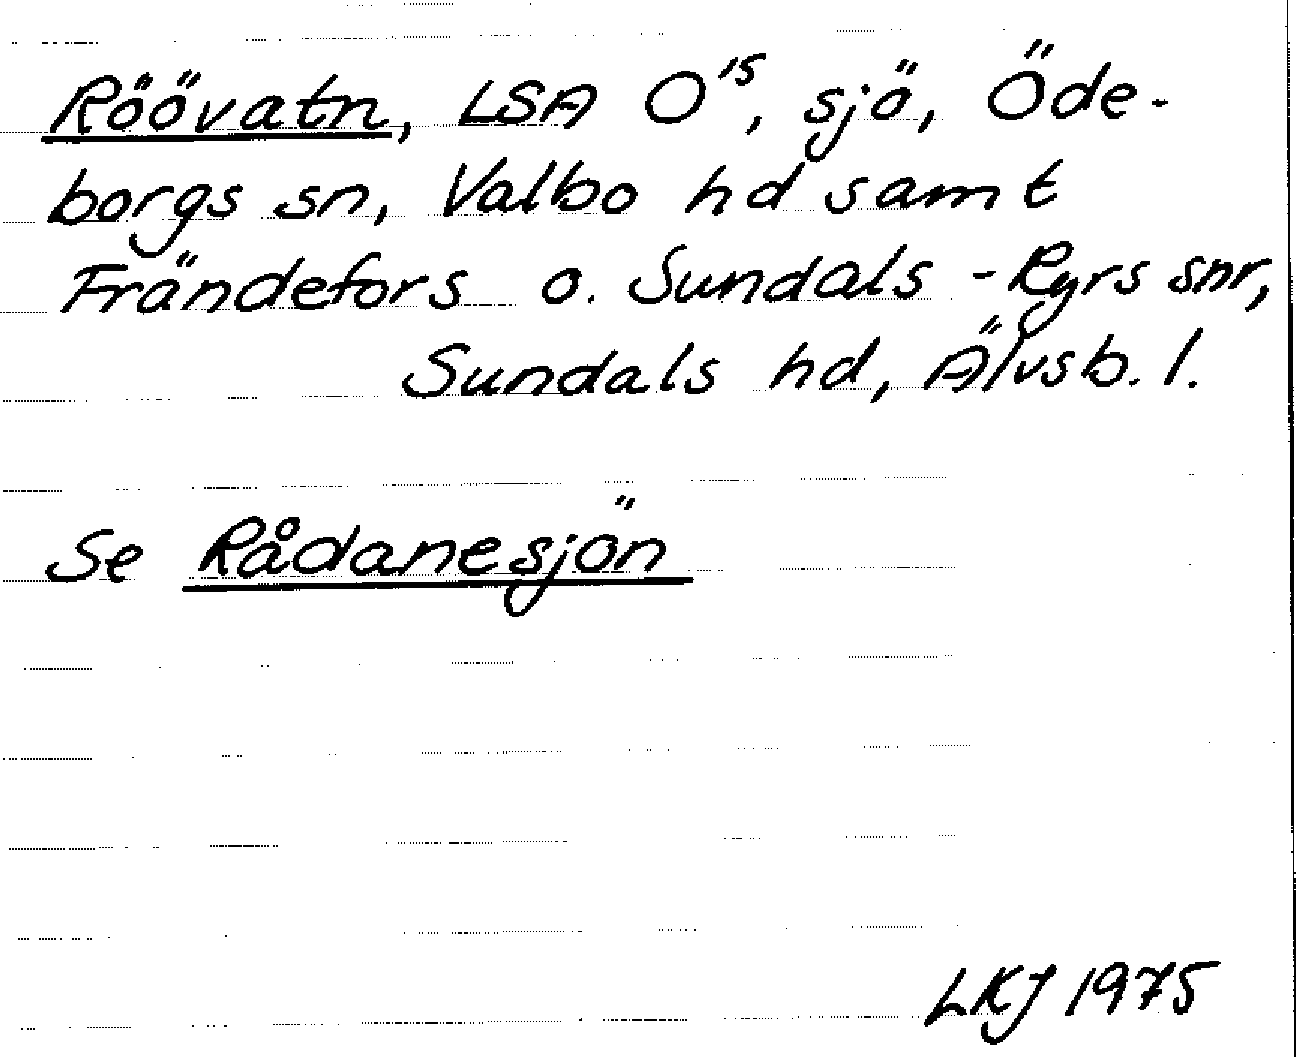 Röövatn, LSA O¹⁵, sjö, Öde-
borgs sn, Valbo hd samt
Frändefors o. Sundals-Ryrs snr,
Sundals hd, Älvsb. l.
Se Rådanesjön
LKJ 1975